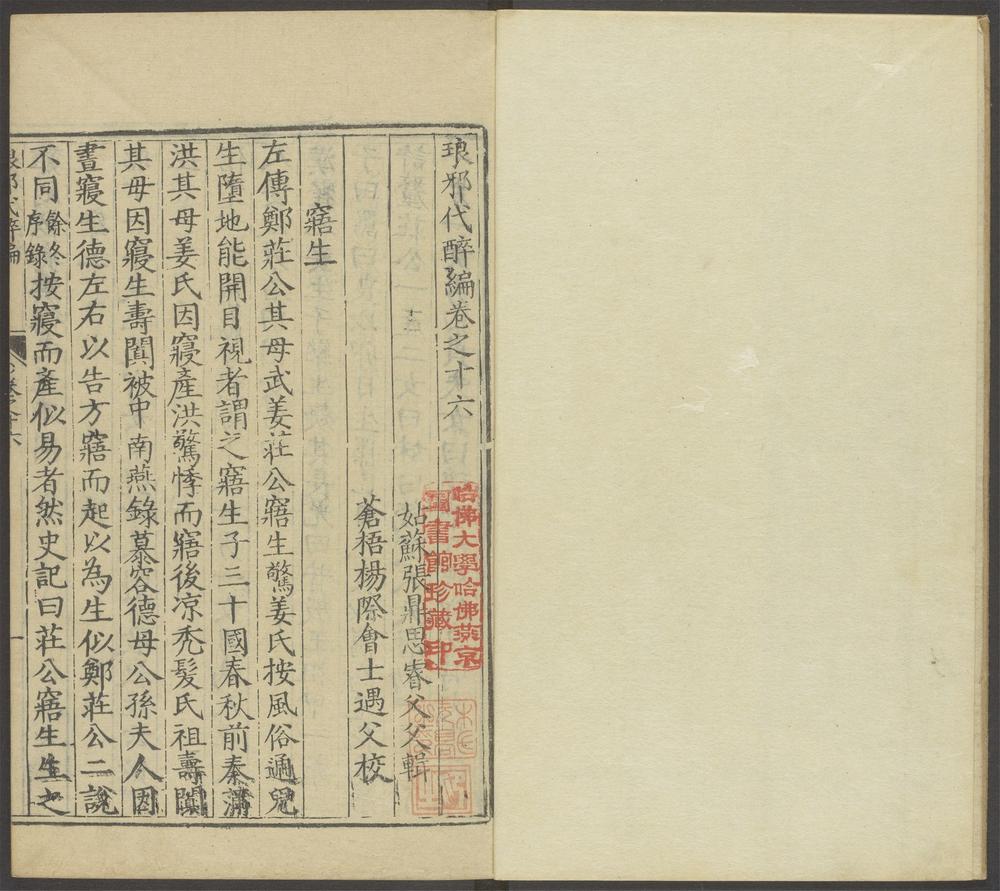 琅邪代醉編卷之十六
姑蘇張鼎思睿父父輯
蒼梧楊際會士遇父校
寤生
左傳鄭莊公其母武姜莊公寤生驚姜氏按風俗通兒
生墮地能開目視者謂之寤生子三十國春秋前秦蒲
洪其母姜氏因寢產洪驚悸而寤後凉禿髮氏祖壽闐
其母因寢生壽闐被中南燕錄慕容德母公孫夫人因
晝寢生德左右以告方寤而起以為生似鄭莊公二說
不同餘冬序錄按寢而產似易者然史記曰莊公寤生生之
琅邪代醉編
卷之十六
一
哈佛大學哈佛燕京
圖書館珍藏印